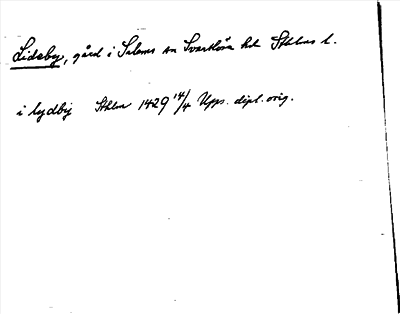 Lideby, gård i Salems sn Svartlösa hd Sthlms l.
i lydby Sthlm 1429 14/4 Upps. dipl. orig.